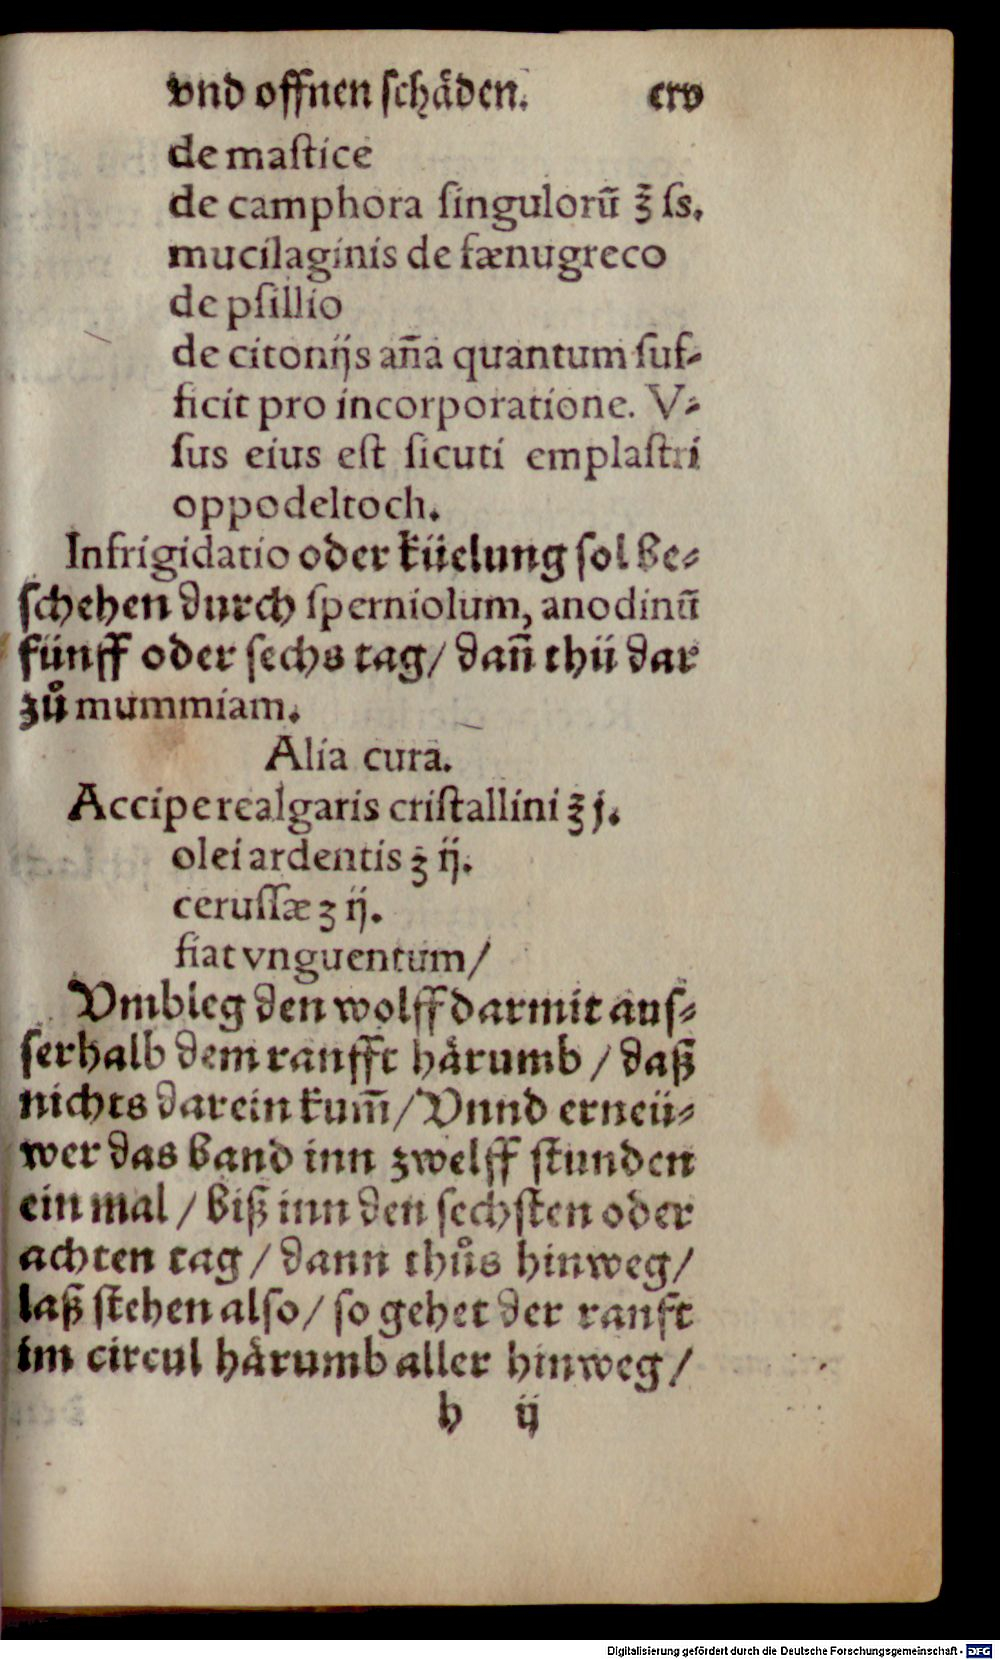 vnd offnen ſchåden. crv
de maſtice
de camphora ſingulorū ℥ ſs.
mucilaginis de fænugreco
de pſillio
de citonijs an̄a quantum ſuf⸗
ficit pro incorporatione. V⸗
ſus eius eſt ſicuti emplaſtri
oppodeltoch.
Infrigidatio oder küelung ſol be⸗
ſchehen durch ſperniolum, anodinū
fünff oder ſechs tag/ dan̄ thü dar
zů mummiam.
Alia cura.
Accipe realgaris criſtallini ℥ j.
olei ardentis ʒ ij.
ceruſſæ ʒ ij.
fiat vnguentum/
Vmbleg den wolff darmit auſ⸗
ſerhalb dem ranfft hårumb / daß
nichts darein kum̄/ Vnnd erneü⸗
wer das band inn zwelff ſtunden
ein mal / biß inn den ſechſten oder
achten tag / dann thůs hinweg/
laß ſtehen alſo/ ſo gehet der ranft
im circul hårumb aller hinweg/
h ij
Digitalisierung gefördert durch die Deutsche Forschungsgemeinschaft - DFG